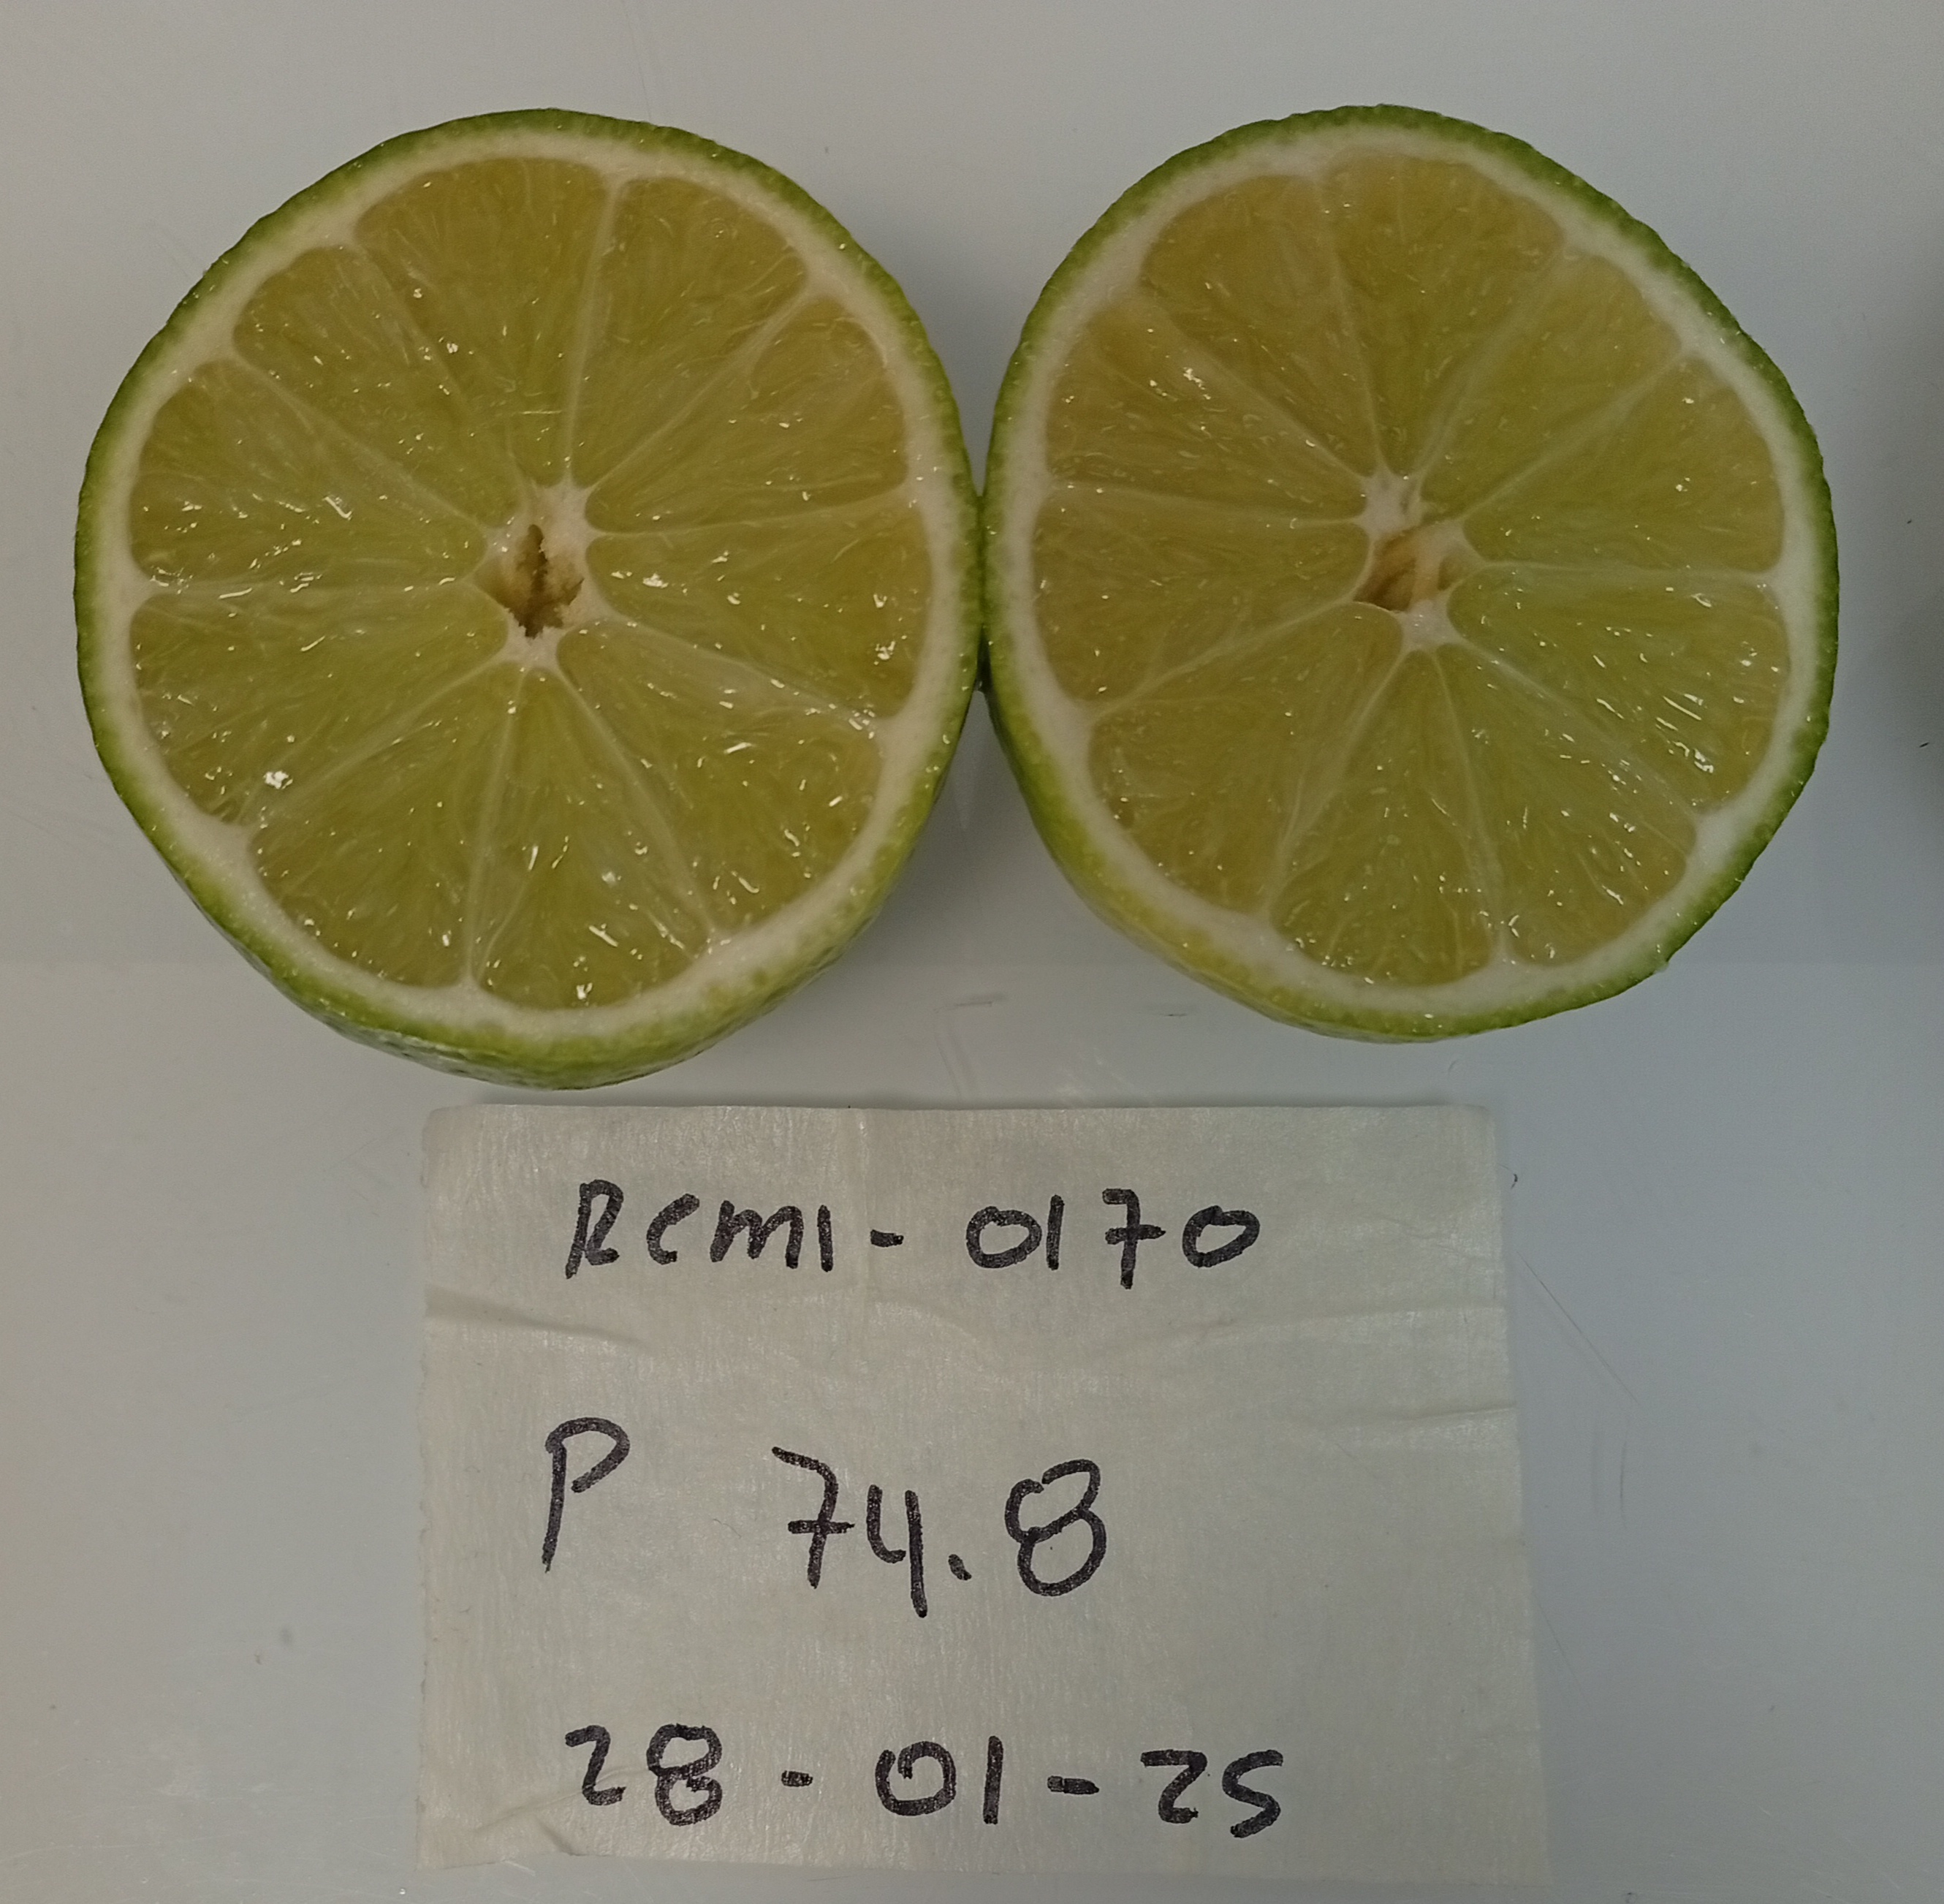 RCMI-0170
P 74.8
28-01-25